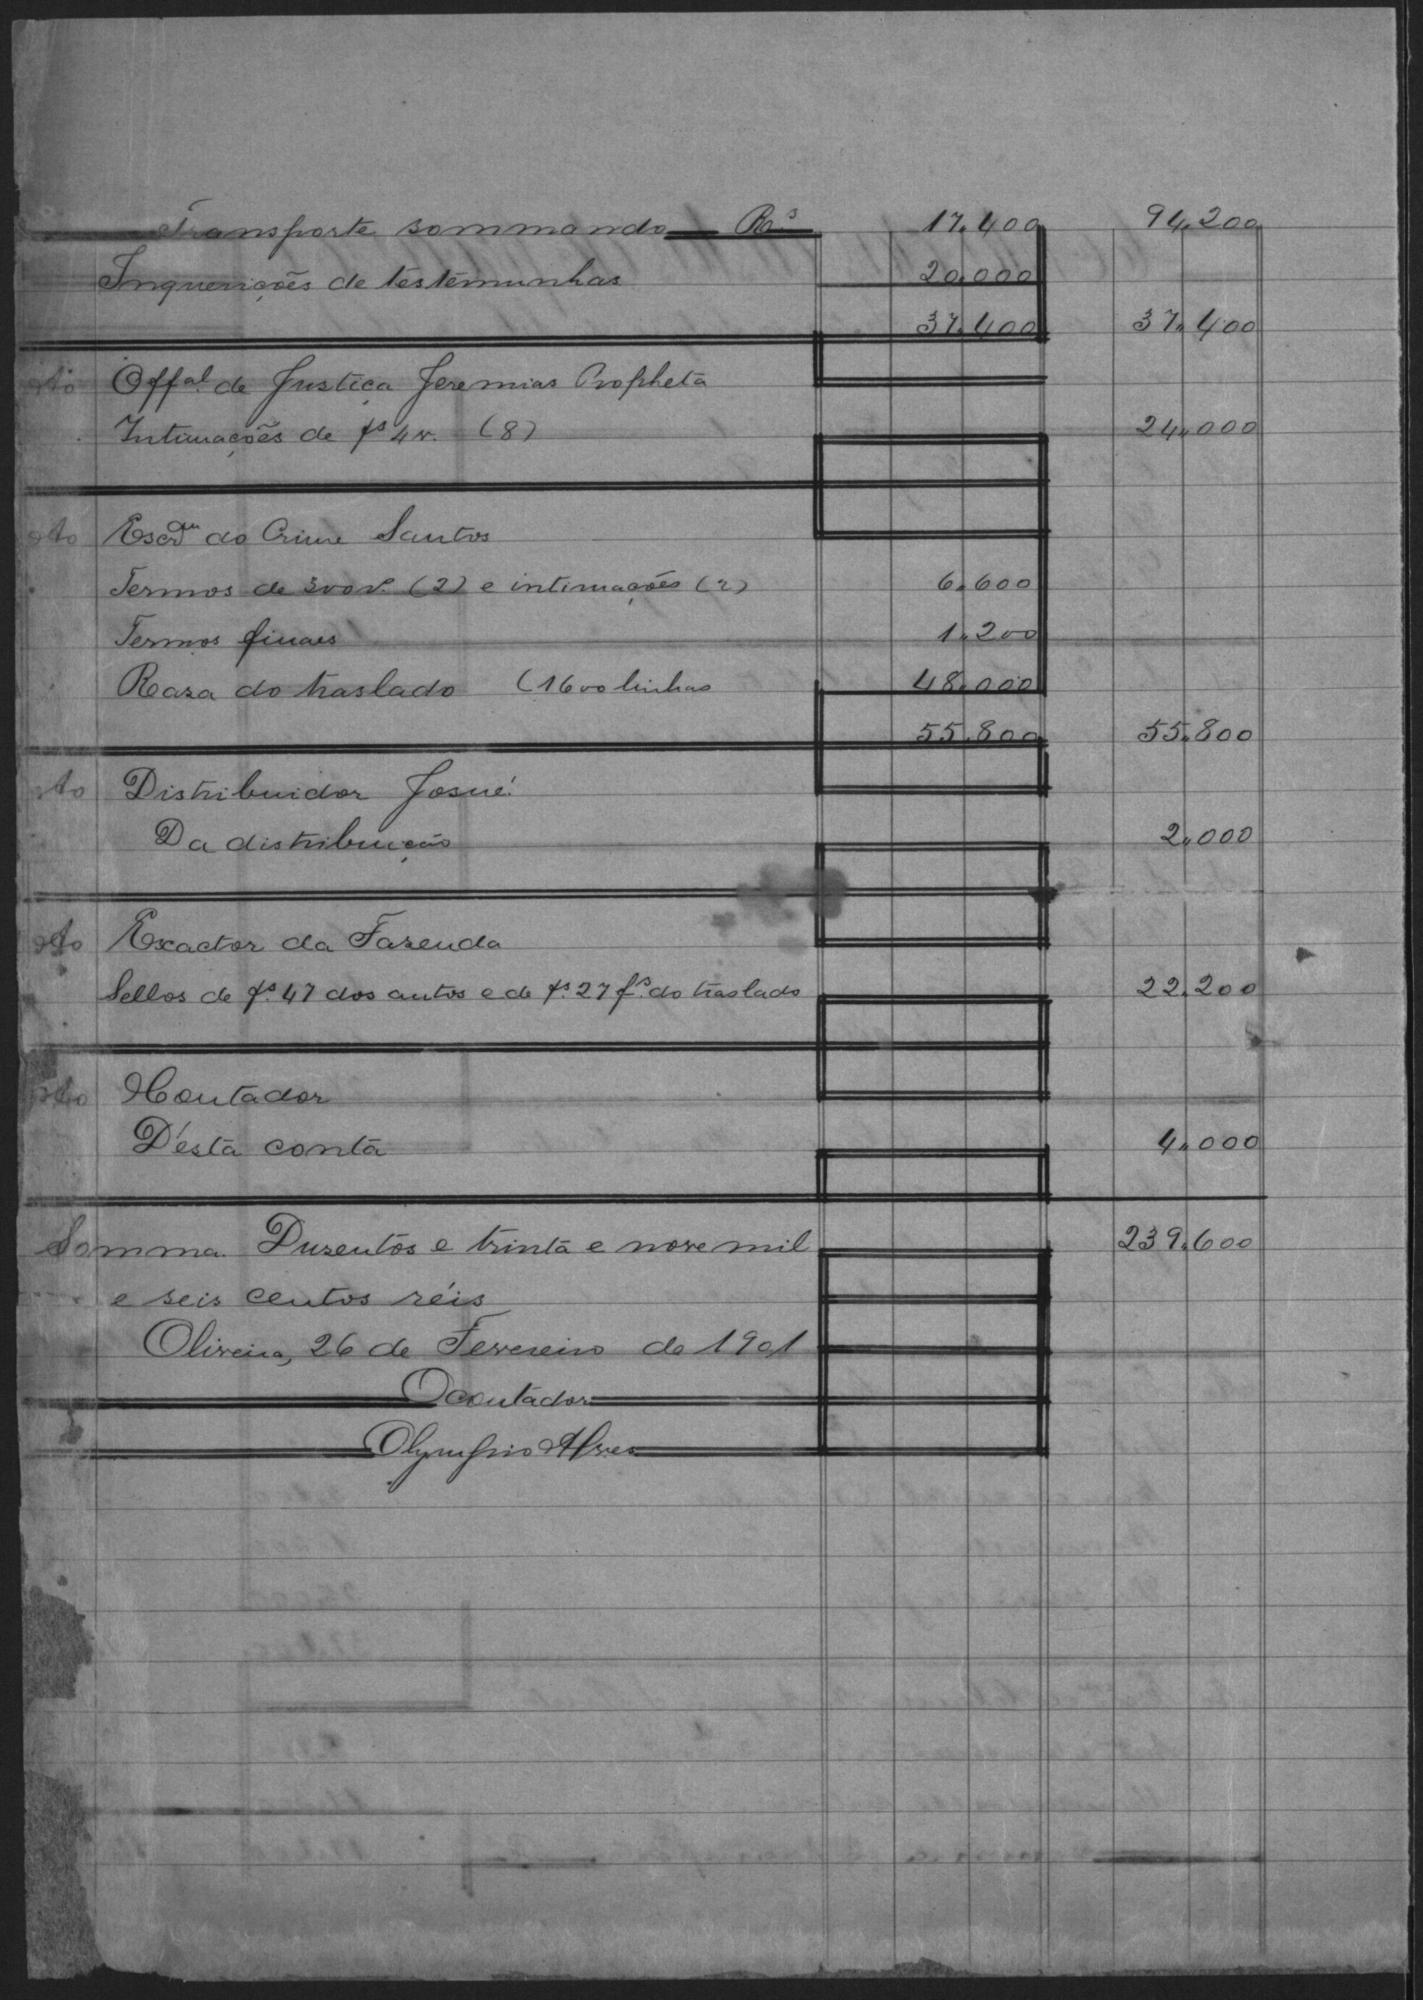 Transporte sommando Rs 17.400 94.200
Inquerições de testemunhas 20.000
37.400 37.400
Ao Offal. de Justiça Jeremias Propheta
Intimações de fs 4 v. (8) 24.000
Ao Escram do Crime Santos
Termos de (2) e intimações (2) 6.600
Termos finaes 1.200
Rasa do traslado (1600 linhas 48.000
55.800 55.800
Ao Distribuidor Josué
Da distribuição 2.000
Ao Exactor da Fazenda
Sellos de fs. 47 dos autos e de fs. 27 fs. do traslado 22.200
Ao Contador
D'esta conta 4.000
Somma. Duzentos e trinta e nove mil 239.600
e seis centos réis
Oliveira, 26 de Fevereiro de 1901
O contador
Olympio Alves